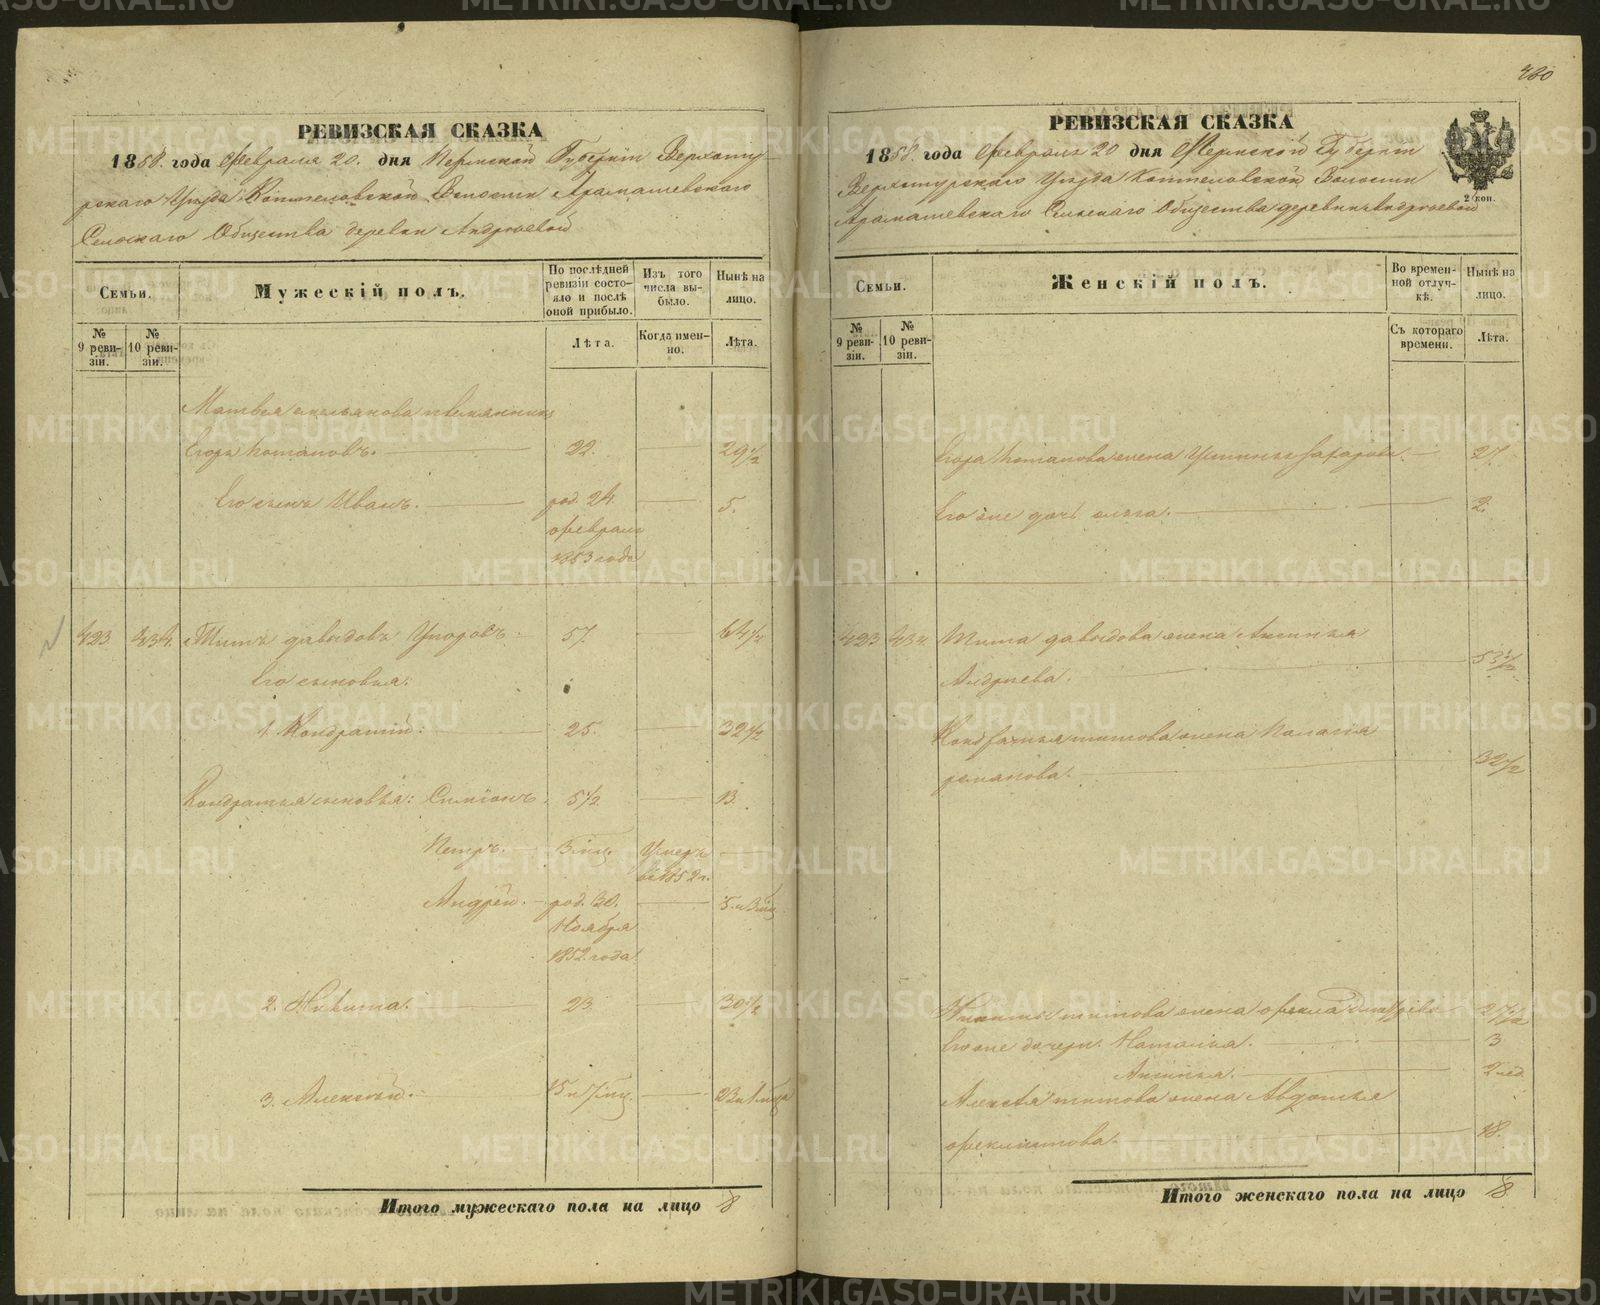 460
РЕВИЗСКАЯ СКАЗКА
1858. года Февраля 20. дня Пермской Губернiи Верхоту-
рскаго Уѣзда Коптеловской Волости Арамашевскаго
Сельскаго Общества деревни Андрѣевой
Семьи.
Мужескій полъ.
По послѣдней ревизіи состояло и послѣ оной прибыло.
Изъ того числа выбыло.
Нынѣ на лицо.
№ 9 ревизіи.
№ 10 ревизіи.
Лѣта.
Когда именно.
Лѣта.
Матвея племянникъ
Егоръ Потаповъ. 22. 29 1/2
Его сынъ Иванъ. род. 24. 5.
февраля
1853 года
423 434. Титъ Давыдовъ Упоровъ. 57. 64 1/2
Его сыновья:
1. Кондратій. 25. 32 1/2
Кондратья сыновья: Симіонъ. 5 1/2 13.
Петръ. 3 мѣс. Умеръ
въ 1852 г.
Андрей. род. 30. 5. и 3 мѣс
Ноября
1852 года
2. Никита. 23 30 1/2
3. Алексѣй. 15 и 7 мѣс. 23 и 1 мѣс
Итого мужескаго пола на лицо 8
РЕВИЗСКАЯ СКАЗКА
1858. года Февраля 20 дня Пермской Губернiи
Верхотурскаго Уѣзда Коптеловской Волости
Арамашевскаго Сельскаго Общества деревни Андрѣевой
2 коп.
Семьи.
Женскій полъ.
Во временной отлучкѣ.
Нынѣ на лицо.
№ 9 ревизіи.
№ 10 ревизіи.
Съ котораго времени.
Лѣта.
Егора Потапова жена Устинья Захарова. 27.
Его же дочь Ольга. 2.
423 434 Тита Давыдова жена Аксинья
Андреева. 53 1/2
Кондратья Титова жена Палагія
романова. 32 1/2
Никиты Титова жена Фекла 27 1/2
Его же дочери. Наталья. 3
Аксинья. 2 нед
Алексѣя Титова жена Авдотья
Феклистова. 18.
Итого женскаго пола на лицо 8
METRIKI.GASO-URAL.RU